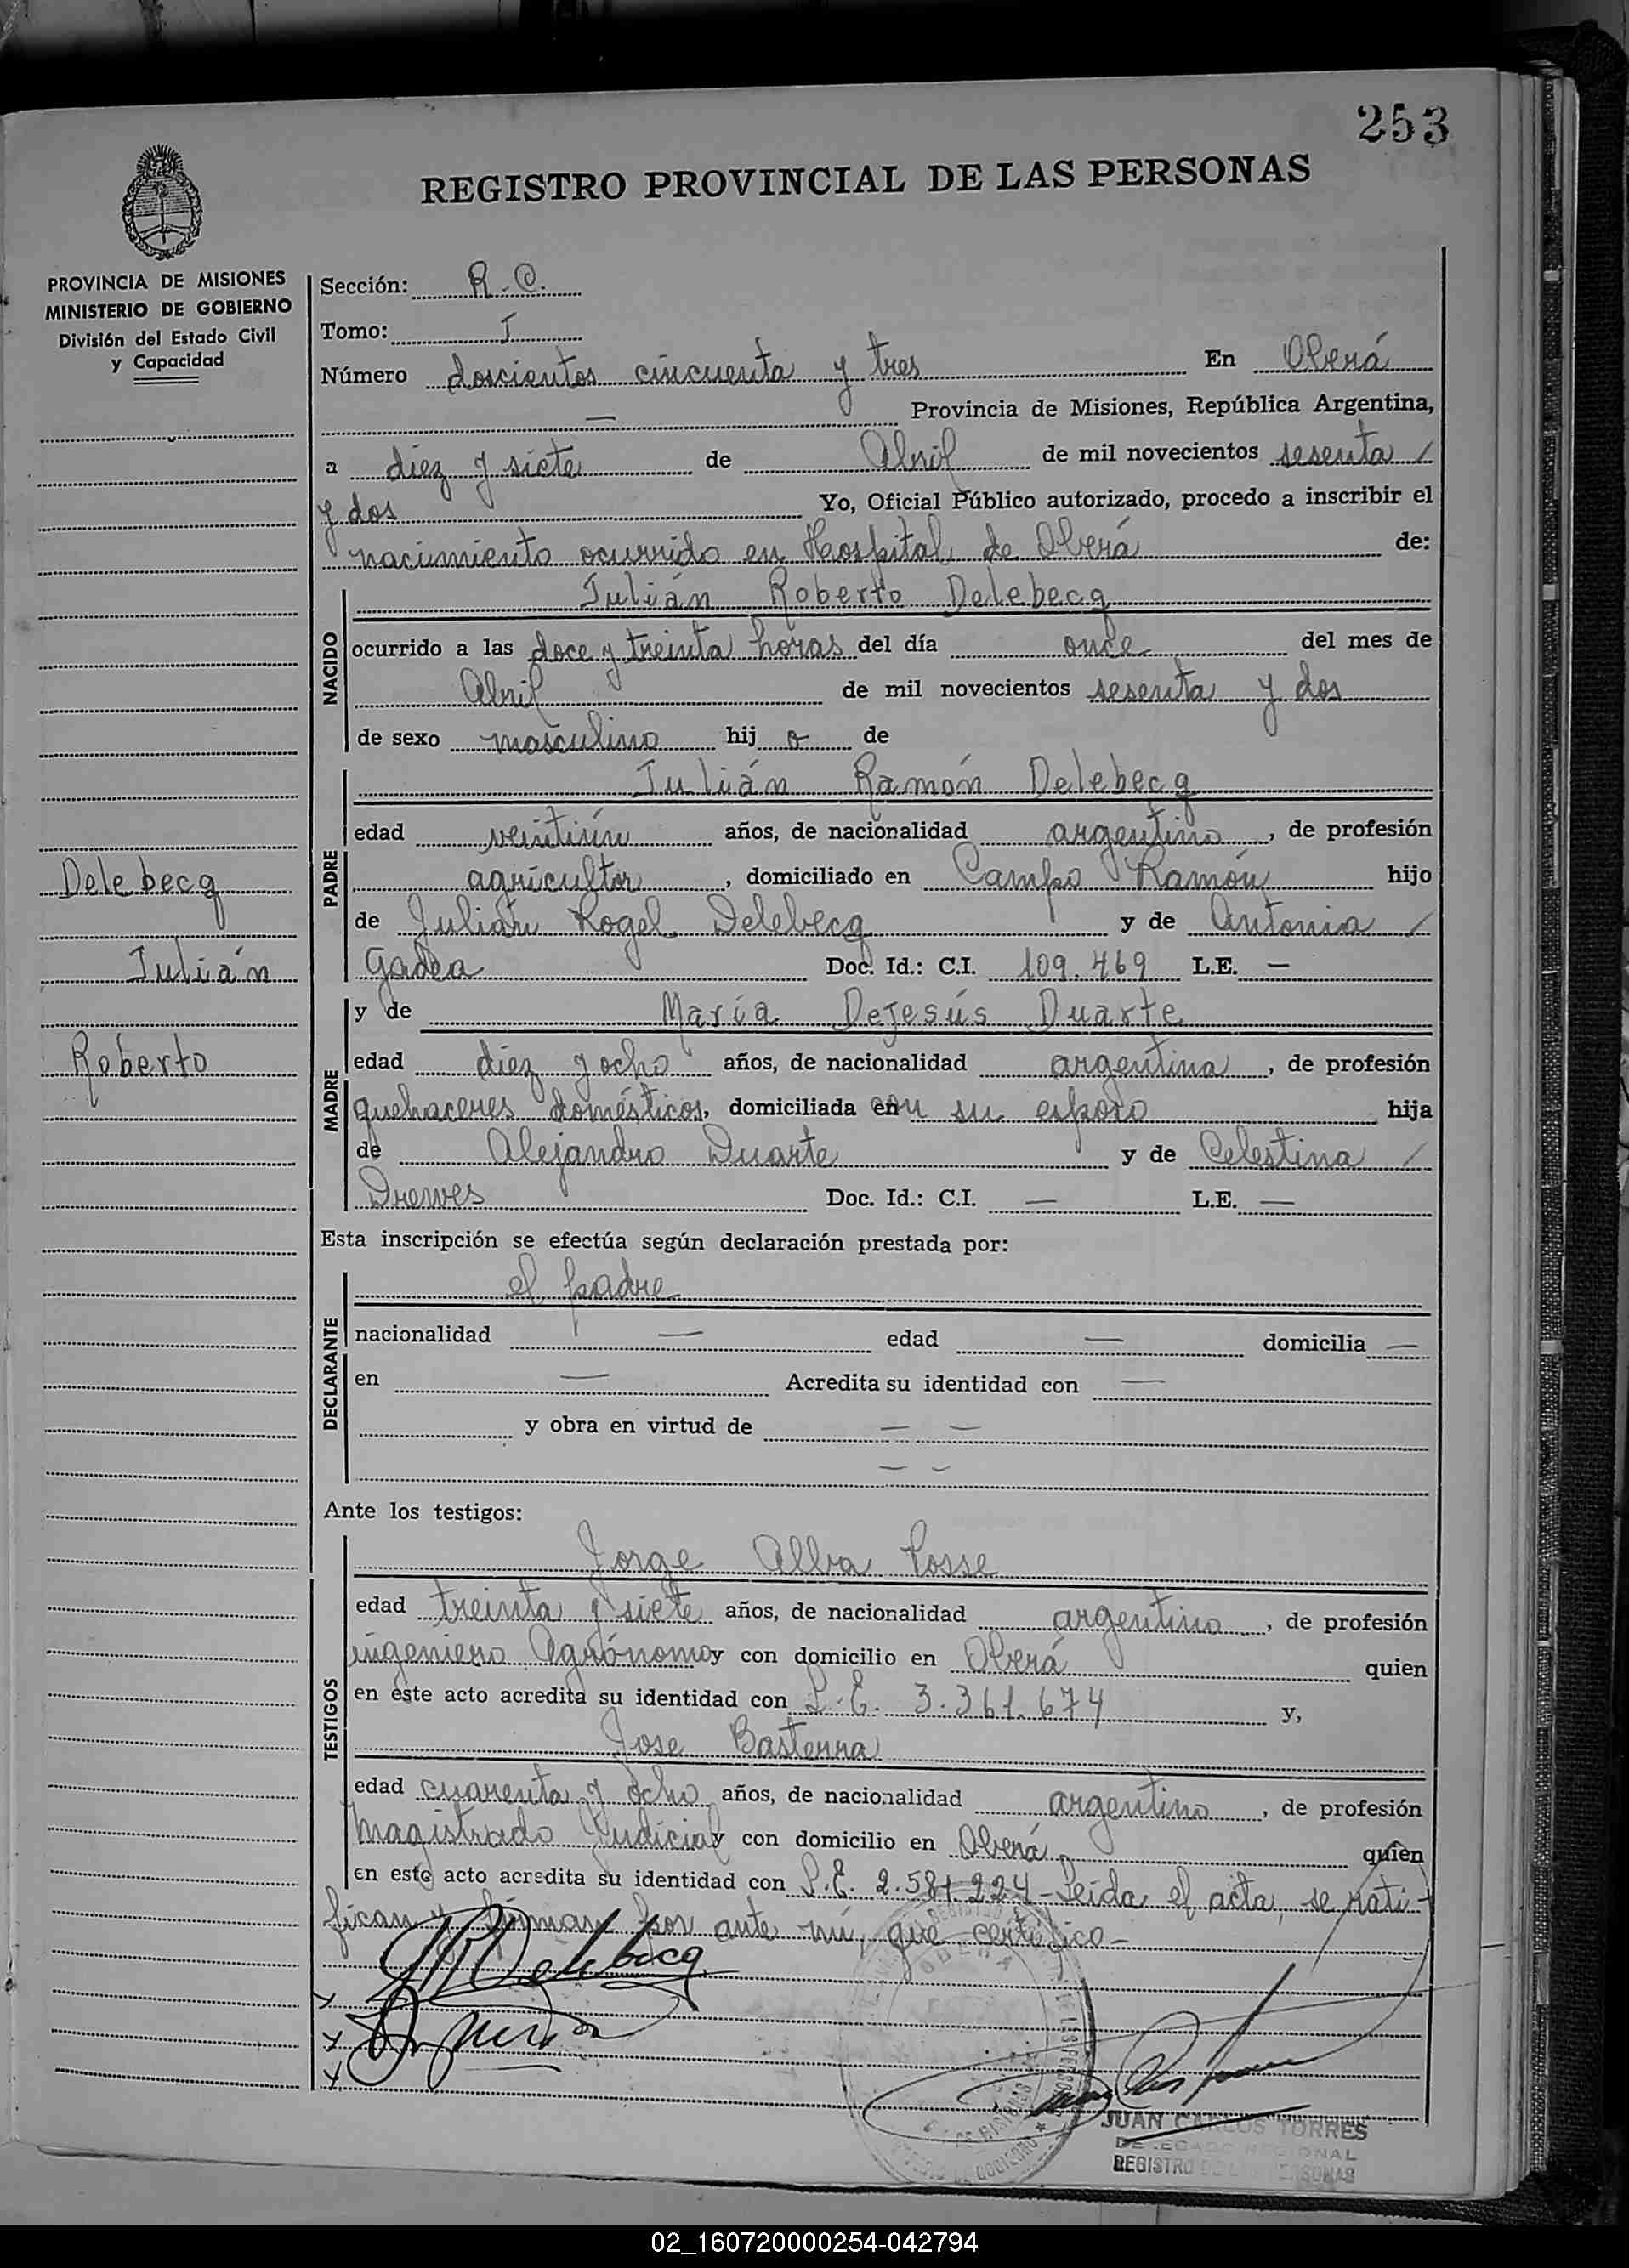 253
REGISTRO PROVINCIAL DE LAS PERSONAS
PROVINCIA DE MISIONES
MINISTERIO DE GOBIERNO
División del Estado Civil
y Capacidad
Delebecq
Julián
Roberto
Sección: R.C.
Tomo: I
Número doscientos cincuenta y tres En Oberá
— Provincia de Misiones, República Argentina,
a diez y siete de Abril de mil novecientos sesenta /
y dos Yo, Oficial Público autorizado, procedo a inscribir el
nacimiento ocurrido en Hospital de Oberá de:
NACIDO
Julián Roberto Delebecq
ocurrido a las doce y treinta horas del día once del mes de
Abril de mil novecientos sesenta y dos
de sexo masculino hij o de
PADRE
Julián Ramón Delebecq
edad veintiún años, de nacionalidad argentino, de profesión
agricultor, domiciliado en Campo Ramón hijo
de Julián Rogel Delebecq y de Antonia /
Gadea Doc. Id.: C.I. 109.469 L.E. —
MADRE
y de María DeJesús Duarte
edad diez y ocho años, de nacionalidad argentina, de profesión
quehaceres domésticos, domiciliada con su esposo hija
de Alejandro Duarte y de Celestina /
Drewes Doc. Id.: C.I. — L.E. —
Esta inscripción se efectúa según declaración prestada por:
DECLARANTE
el padre
nacionalidad — edad — domicilia —
en — Acredita su identidad con —
y obra en virtud de — —
— —
Ante los testigos:
TESTIGOS
Jorge Alba Posse
edad treinta y siete años, de nacionalidad argentino, de profesión
ingeniero Agrónomo y con domicilio en Oberá quien
en este acto acredita su identidad con L.E. 3.361.674 y,
Jose Basterra
edad cuarenta y ocho años, de nacionalidad argentino, de profesión
Magistrado Judicial y con domicilio en Oberá quien
en este acto acredita su identidad con L.E. 2.581.224 - Leida el acta, se rati-
fican y firman por ante mí, que certifico-
JRDelebecq
JUAN CARLOS TORRES
DELEGADO REGIONAL
REGISTRO DE LAS PERSONAS
02_160720000254-042794